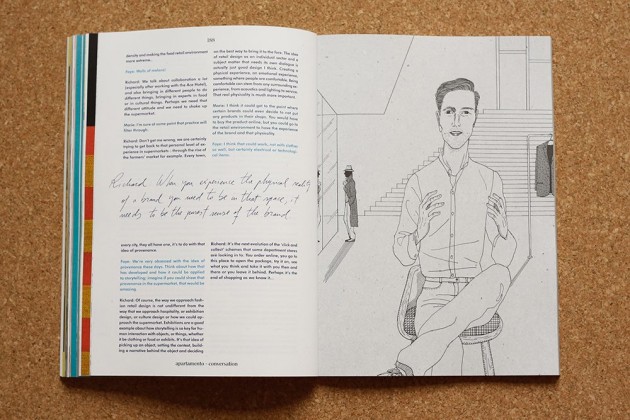 density and making the food retail environment
more extreme.
Faye: Walls of watercress.
Richard: We talk about collaboration a lot
(especially after working with the Ace Hotel),
and also bringing in different people to do
different things, bringing in experts in food
or in cultural things. Perhaps we need that
different attitude and we need to shake up
the supermarket.
Maria: I'm sure at some point that practice will
filter through.
Richard: Don't get me wrong, we are certainly
trying to get back to that personal level of ex-
perience in supermarkets – through the rise of
the farmers' market for example. Every town,
Richard When you experience the physical reality
of a brand you need to be in that space, it
needs to be the purest sense of the brand
every city, they all have one, it's to do with that
idea of provenance.
Faye: We're very obsessed with the idea of
provenance these days. Think about how that
has developed and how it could be applied
to storytelling: imagine if you could then that
provenance in the supermarket, that would be
amazing.
Richard: Of course, the way we approach fash-
ion retail design is not undifferent from the
way that we approach hospitality, or exhibition
design, or culture design or how we could ap-
proach the supermarket. Exhibitions are a good
example about how storytelling is so key for hu-
man interaction with objects, or things, whether
it be clothing or food or exhibits. It's that idea of
picking up an object, setting the context, build-
ing a narrative behind the object and deciding
on the best way to bring it to the fore. The idea
of retail design as an individual sector and a
subject matter that needs its own dialogue is
actually just good design I think. Creating a
physical experience, an emotional experience,
something where people are comfortable. Being
comfortable can stem from any surrounding ex-
perience, from acoustics and lighting to service.
That real physicality is much more important.
Maria: I think it could get to the point where
certain brands could even decide to not put
any products in their stores. You would have
to buy the product online, but you could go to
the retail environment to have the experience
of the brand and that physicality.
Faye: I think that could work, not with clothes
as well, but certainly electrical or technolog-
ical items.
Richard: It's the next evolution of the 'click and
collect' schemes that some department stores
are looking in to. You order online, you go to
this place to open the package, try it on, say
what you think and take it with you then and
there or you leave it behind. Perhaps it's the
end of shopping as we know it...
apartamento - conversation